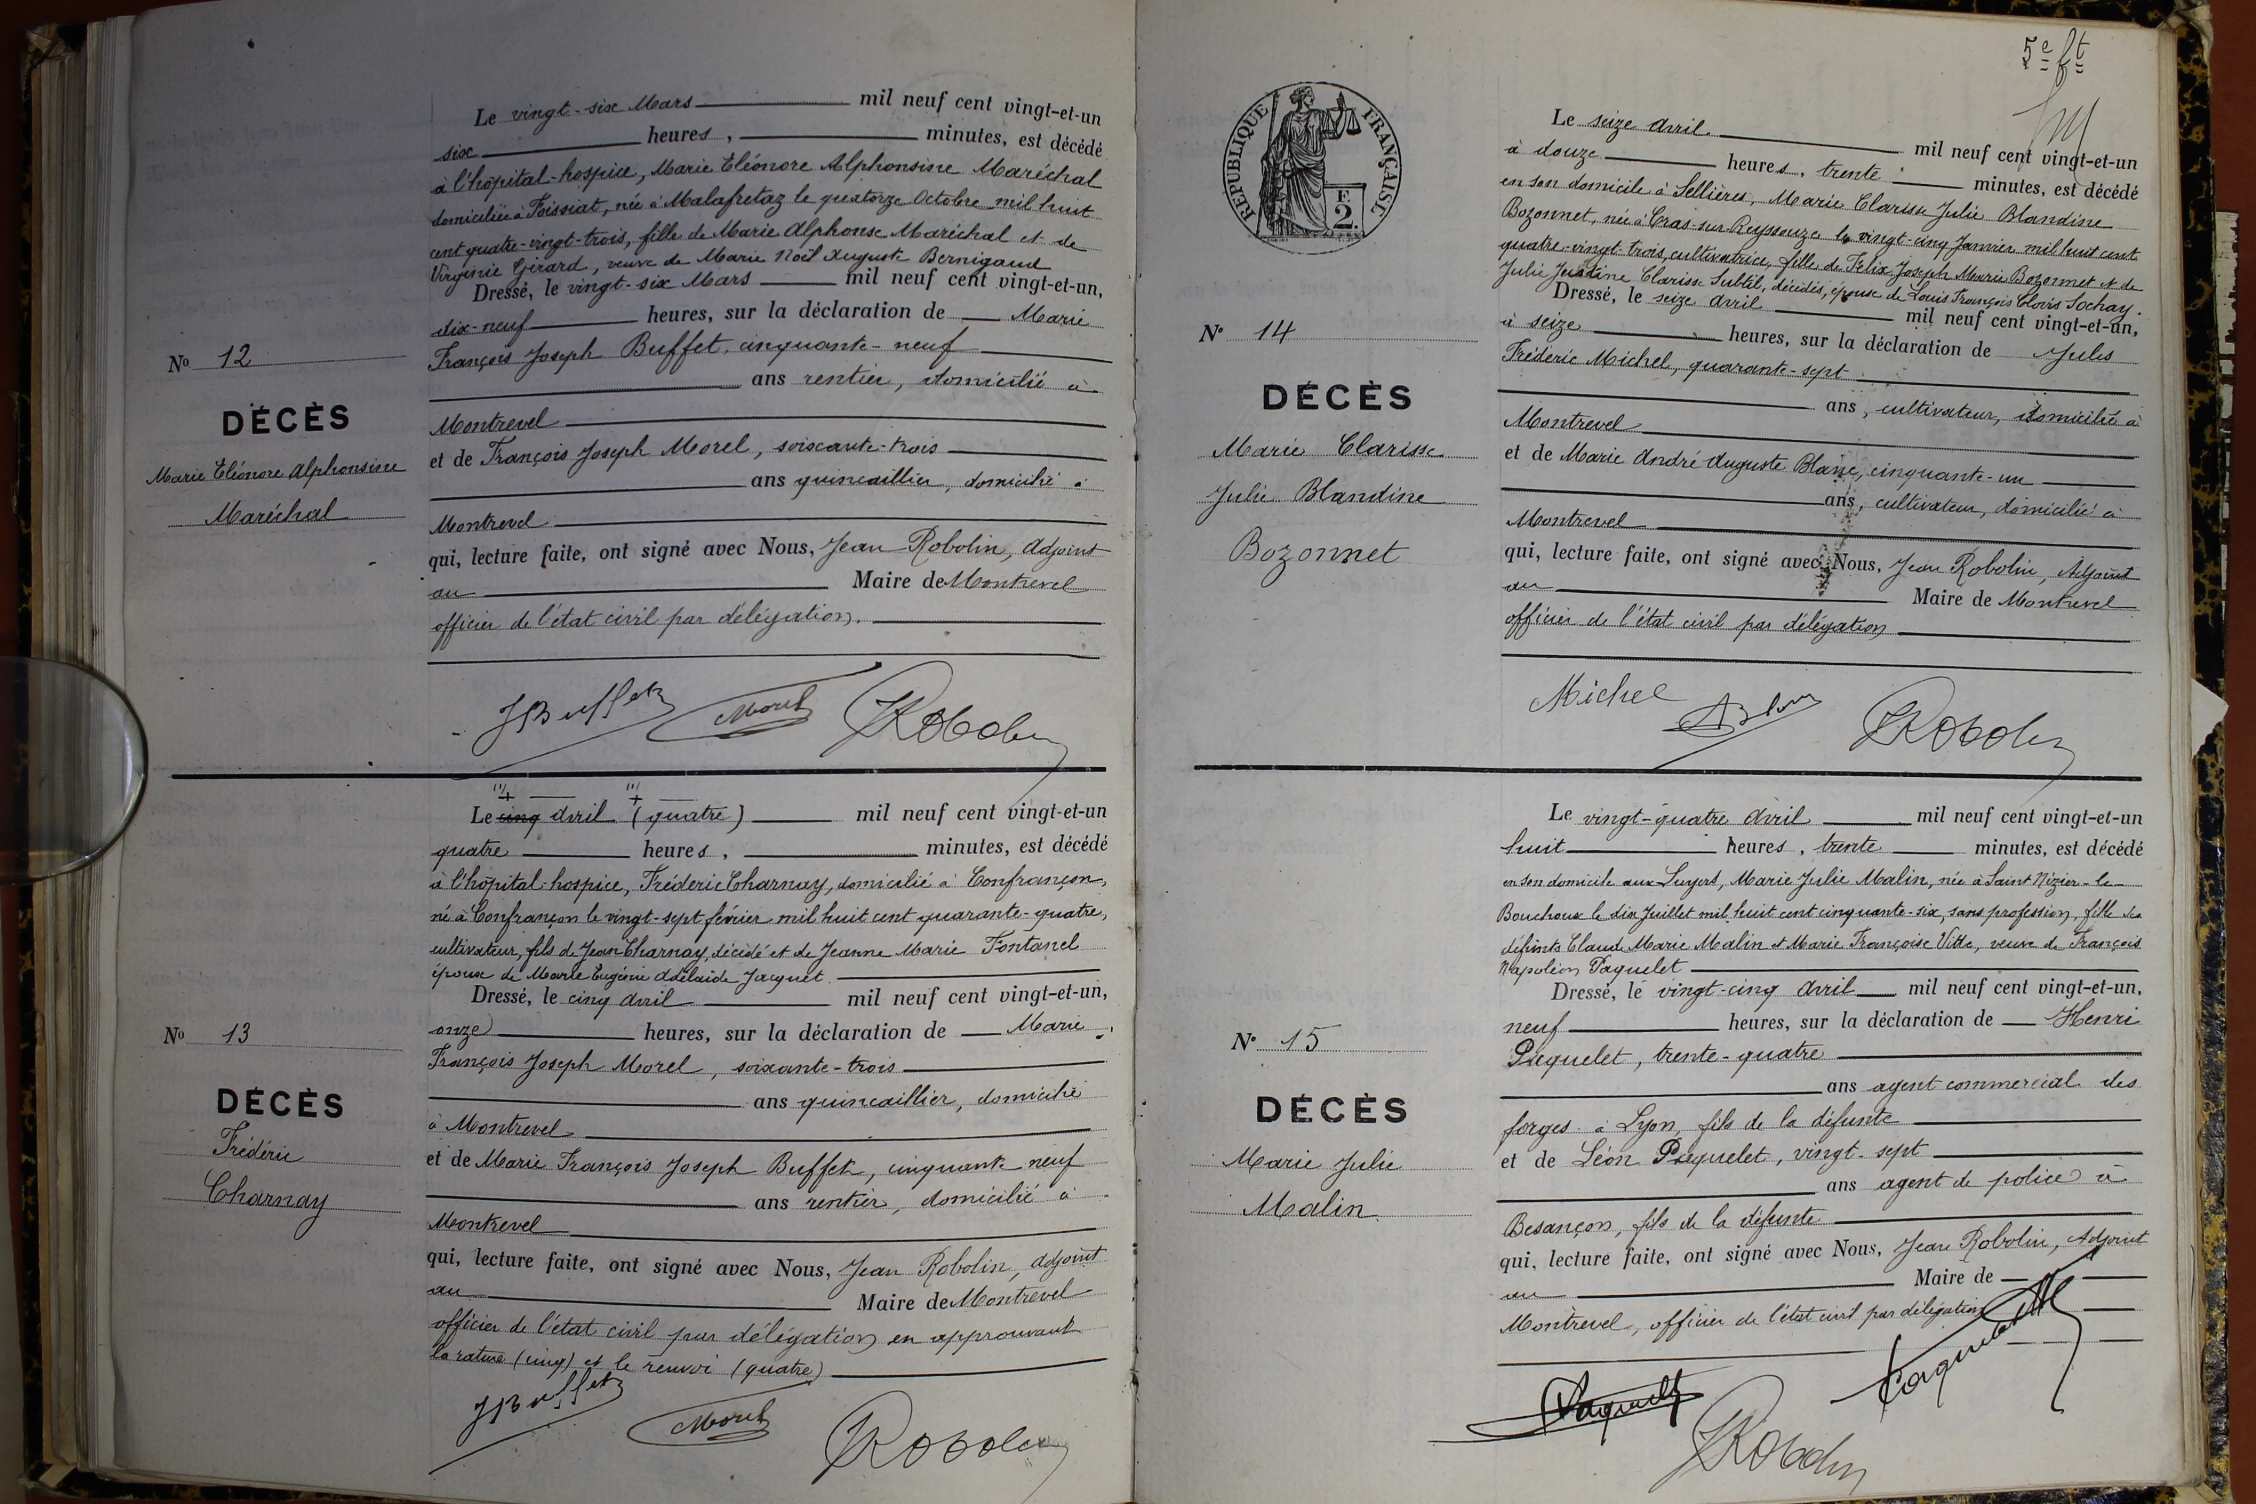 Le vingt-six Mars mil neuf cent vingt-et-un
six heures, minutes, est décédé
à l'hôpital-hospice, Marie Eléonore Alphonsine Maréchal
domiciliée à Foissiat, née à Malafretaz le quatorze Octobre mil huit
cent quatre-vingt-trois, fille de Marie Alphonse Maréchal et de
Virginie Girard, veuve de Marie Noël Auguste Bernigaud
Dressé, le vingt-six Mars mil neuf cent vingt-et-un,
dix-neuf heures, sur la déclaration de Marie
François Joseph Buffet, cinquante-neuf
ans rentier, domicilié à
Montrevel
et de François Joseph Morel, soixante-trois
ans quincaillier, domicilié à
Montrevel
qui, lecture faite, ont signé avec Nous, Jean Robolin, Adjoint
au Maire de Montrevel
officier de l'état civil par délégation.
No 12
DÉCÈS
Marie Eléonore Alphonsine
Maréchal
JBuffet Morel JRobolin
Le cinq avril (quatre) mil neuf cent vingt-et-un
quatre heures, minutes, est décédé
à l'hôpital-hospice, Fréderic Charnay, domicilié à Confrançon,
né à Confrançon le vingt-sept février mil huit cent quarante-quatre,
cultivateur, fils de Jean Charnay, décédé et de Jeanne Marie Fontanel
époux de Marie Eugénie Adélaïde Jacquet
Dressé, le cinq avril mil neuf cent vingt-et-un,
onze heures, sur la déclaration de Marie
François Joseph Morel, soixante-trois
ans quincaillier, domicilié
à Montrevel
et de Marie François Joseph Buffet, cinquante neuf
ans rentier, domicilié à
Montrevel
qui, lecture faite, ont signé avec Nous, Jean Robolin, adjoint
au Maire de Montrevel
officier de l'état civil par délégation en approuvant
la rature (cinq) et le renvoi (quatre)
No 13
DÉCÈS
Frédéric
Charnay
JBuffet Morel JRobolin
5e ft
RÉPUBLIQUE FRANÇAISE
F.
2.
Le seize avril mil neuf cent vingt-et-un
à douze heures, trente minutes, est décédé
en son domicile à Sellières, Marie Clarisse Julie Blandine
Bozonnet, née à Cras-sur-Reyssouze le vingt-cinq Janvier mil huit cent
quatre-vingt-trois, cultivatrice, fille de Félix Joseph Marie Bozonnet et de
Julie Justine Clarisse Subtil, décédés, épouse de Louis François Clovis Sochay.
Dressé, le seize avril mil neuf cent vingt-et-un,
à seize heures, sur la déclaration de Jules
Fréderic Michel, quarante-sept
ans, cultivateur, domicilié à
Montrevel
et de Marie André Auguste Blanc, cinquante-un
ans, cultivateur, domicilié à
Montrevel
qui, lecture faite, ont signé avec Nous, Jean Robolin, Adjoint
au Maire de Montrevel
officier de l'état civil par délégation
No 14
DÉCÈS
Marie Clarisse
Julie Blandine
Bozonnet
Michel JRobolin
Le vingt-quatre avril mil neuf cent vingt-et-un
huit heures, trente minutes, est décédé
en son domicile aux Luyers, Marie Julie Malin, née à Saint Nizier-le-
Bouchoux le dix Juillet mil huit cent cinquante-six, sans profession, fille des
défunts Claude Marie Malin et Marie Françoise Vitte, veuve de François
Napoléon Paquelet
Dressé, le vingt-cinq avril mil neuf cent vingt-et-un,
neuf heures, sur la déclaration de Henri
Paquelet, trente-quatre
ans agent commercial des
forges à Lyon, fils de la défunte
et de Léon Paquelet, vingt-sept
ans agent de police à
Besançon, fils de la défunte
qui, lecture faite, ont signé avec Nous, Jean Robolin, Adjoint
au Maire de
Montrevel, officier de l'état civil par délégation
No 15
DÉCÈS
Marie Julie
Malin
Paquelet JRobolin Paquelet